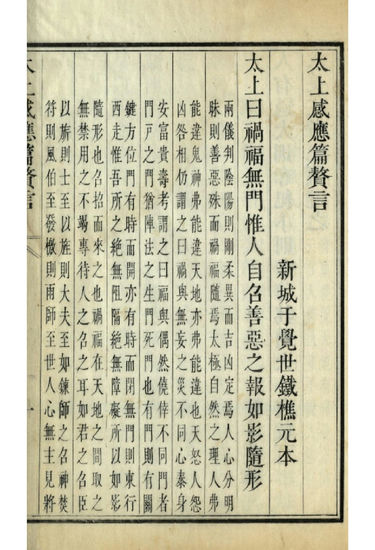 太上感應篇贅言
新城于覺世鐵樵元本
太上曰禍福無門惟人自召善惡之報如影隨形
兩儀判陰陽則剛柔異而吉凶定焉人心分明
昧則善惡殊而禍福隨焉太極自然之理人弗
能違鬼神弗能違天地亦弗能違也天怒人怨
凶咎相仍謂之曰禍與無妄之災不同心泰身
安富貴壽考謂之曰福與偶然僥倖不同門者
門戸之門猶陣法之生門死門也有門則有關
鍵方位門有時而開亦有時而閉無門則東行
西走惟吾所之絕無阻隔絕無障礙所以如影
隨形也召招而來之也禍福在天地之間取之
無禁用之不竭專待人之召之耳如君之召臣
以旌則士至以旃則大夫至如鍊師之召神焚
符則風伯至發檄則雨師至世人心無主見將
太上感應篇贅言
一